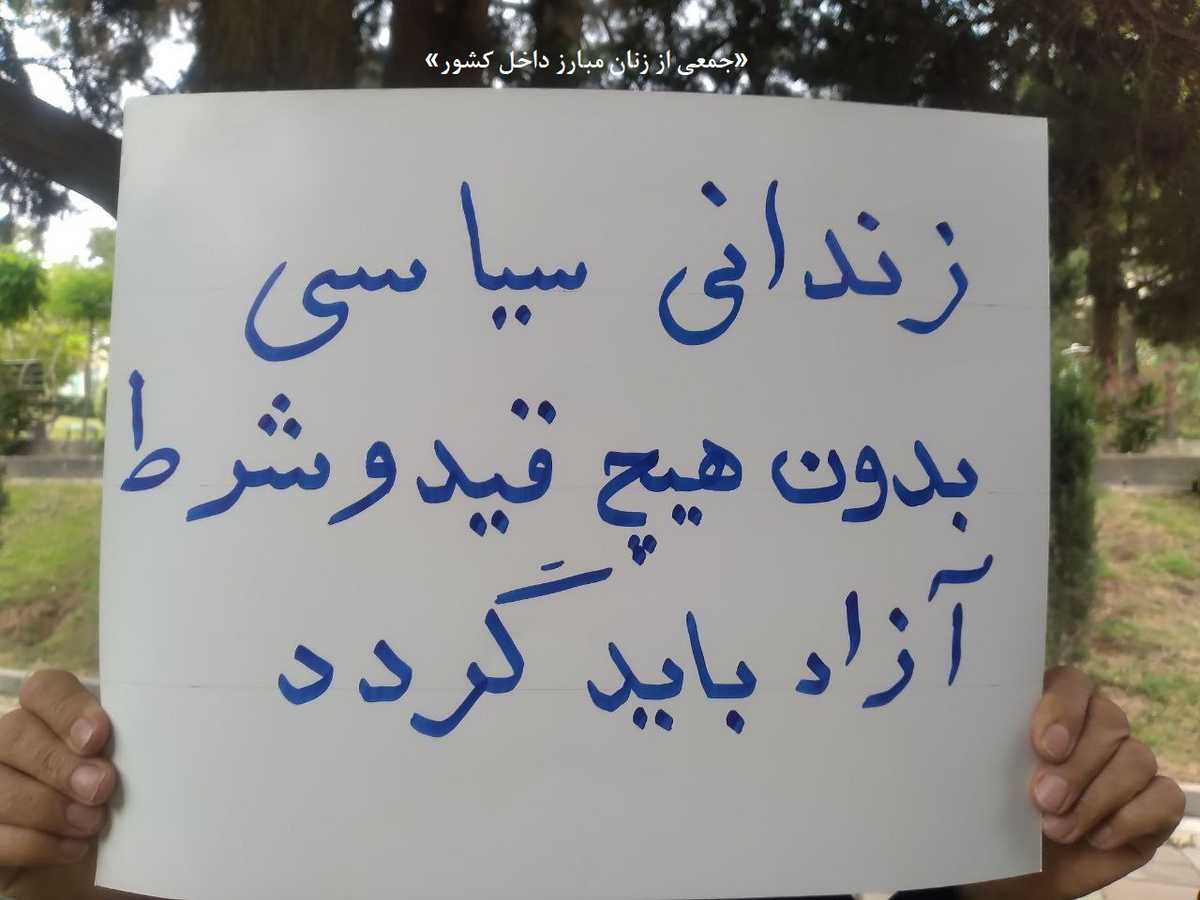 «جمعی از زنان مبارز داخل کشور»
زندانی سیاسی
بدون هیچ قید و شرط
آزاد باید گَردد